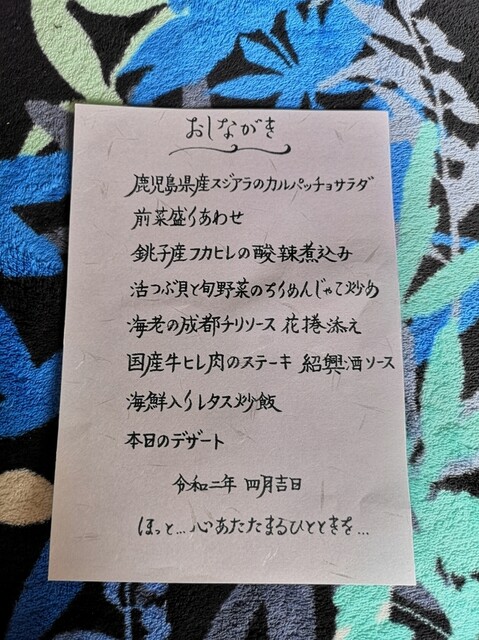 おしながき
鹿児島県産スジアラのカルパッチョサラダ
前菜盛りあわせ
銚子産フカヒレの酸辣煮込み
活つぶ貝と旬野菜のちりめんじゃこ炒め
海老の成都チリソース 花捲添え
国産牛ヒレ肉のステーキ 紹興酒ソース
海鮮入りレタス炒飯
本日のデザート
令和二年 四月吉日
ほっと…心あたたまるひとときを…